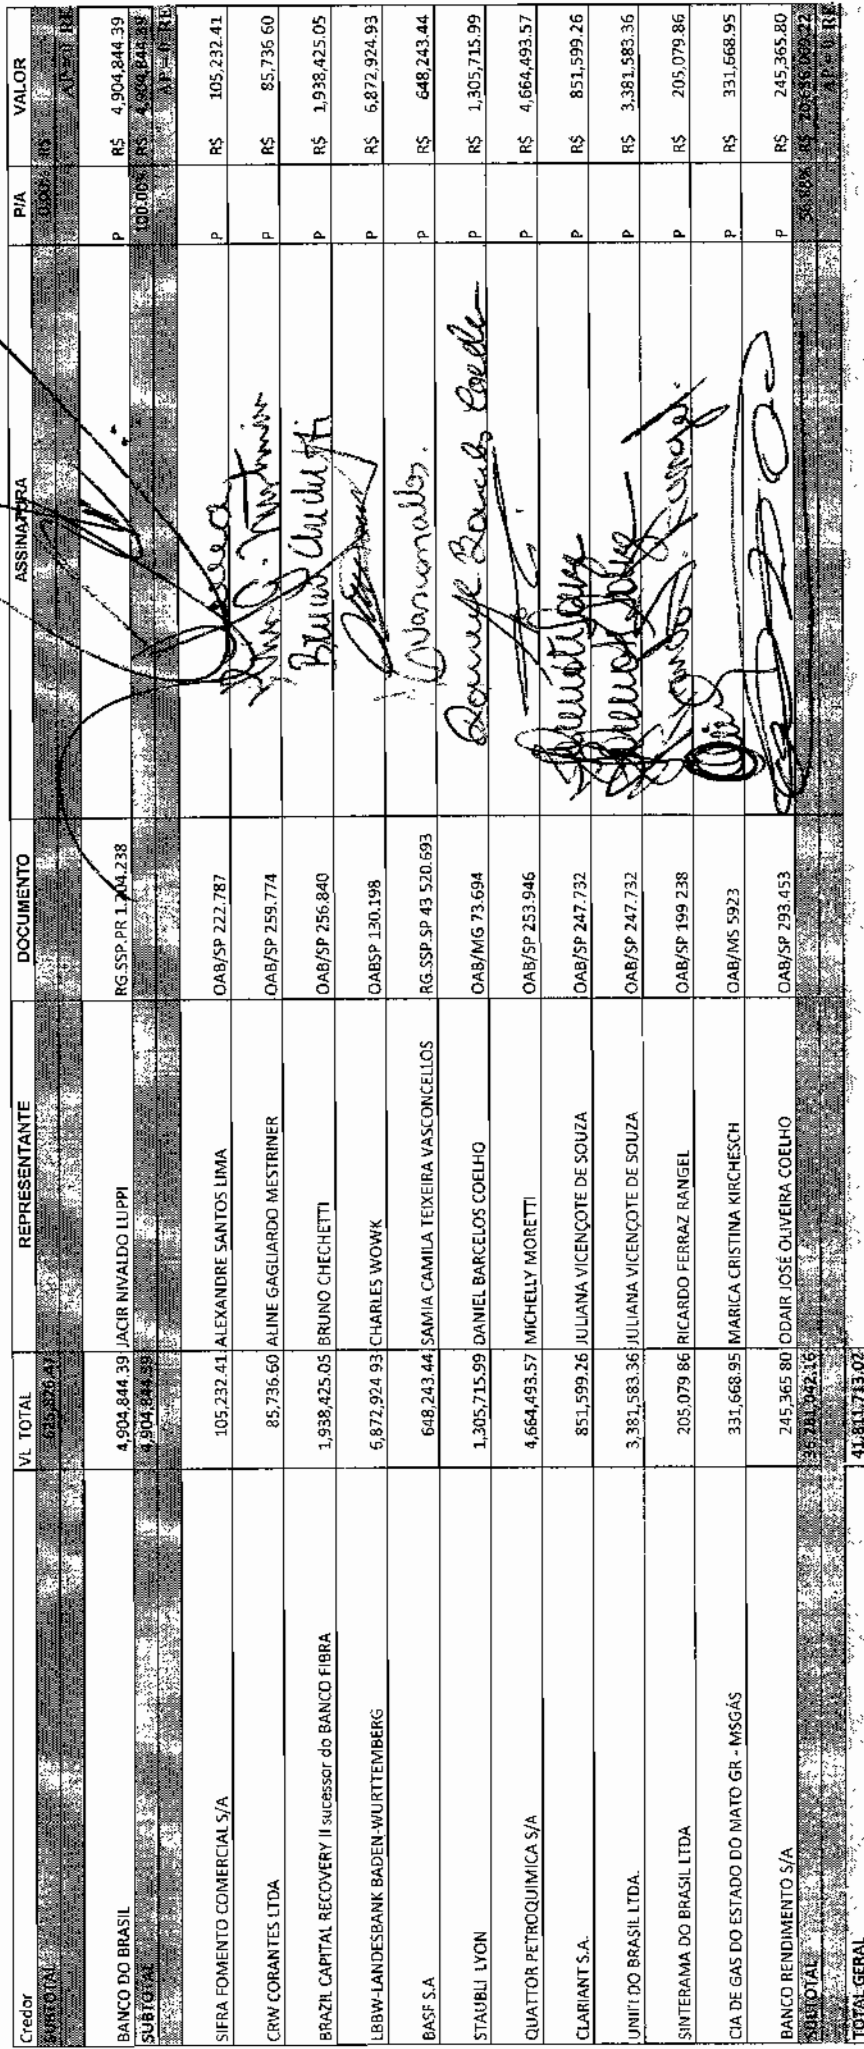 Credor VL TOTAL REPRESENTANTE DOCUMENTO ASSINATURA P/A VALOR
SUBTOTAL 625,826.47 0.00% R$
BANCO DO BRASIL 4,904,844.39 JACIR NIVALDO LUPPI RG.SSP.PR 1.204.238 P R$ 4,904,844.39
SUBTOTAL 4,904,844.39 100.00% R$ 4,904,844.39
SIFRA FOMENTO COMERCIAL S/A 105,232.41 ALEXANDRE SANTOS LIMA OAB/SP 222.787 P R$ 105,232.41
CRW CORANTES LTDA 85,736.60 ALINE GAGLIARDO MESTRINER OAB/SP 259.774 P R$ 85,736 60
BRAZIL CAPITAL RECOVERY II sucessor do BANCO FIBRA 1,938,425.05 BRUNO CHECHETTI OAB/SP 256.840 Bruno Chechetti P R$ 1,938,425.05
LBBW-LANDESBANK BADEN-WURTTEMBERG 6,872,924 93 CHARLES WOWK OABSP 130.198 P R$ 6,872,924.93
BASF S.A 648,243.44 SAMIA CAMILA TEIXEIRA VASCONCELLOS RG.SSP.SP 43 520.693 P R$ 648,243.44
STAUBLI LYON 1,305,715.99 DANIEL BARCELOS COELHO OAB/MG 73.694 P R$ 1,305,715.99
QUATTOR PETROQUIMICA S/A 4,664,493.57 MICHELLY MORETTI OAB/SP 253.946 P R$ 4,664,493.57
CLARIANT S.A. 851,599.26 JULIANA VICENÇOTE DE SOUZA OAB/SP 247.732 P R$ 851,599.26
DO BRASIL LTDA. 3,381,583.36 JULIANA VICENÇOTE DE SOUZA OAB/SP 247.732 P R$ 3,381,583.36
SINTERAMA DO BRASIL LTDA 205,079 86 RICARDO FERRAZ RANGEL OAB/SP 199 238 P R$ 205,079.86
CIA DE GAS DO ESTADO DO MATO GR - MSGÁS 331,668.95 MARICA CRISTINA KIRCHESCH OAB/MS 5923 P R$ 331,668.95
BANCO RENDIMENTO S/A 245,365 80 ODAIR JOSÉ OLIVEIRA COELHO OAB/SP 293.453 P R$ 245,365.80
SUBTOTAL 36,281,042.16 56.88% R$
TOTAL GERAL 41,811,713.02